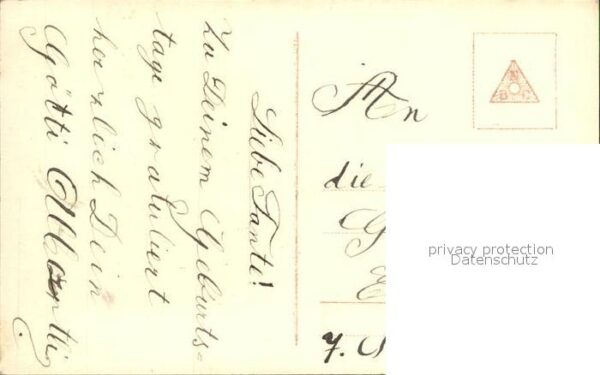 Liebe Tanti!
Zu Deinem Geburts-
tage gratuliert
herzlich Dein
Götti
An
die
G
E
7. S
N
B C
privacy protection
Datenschutz